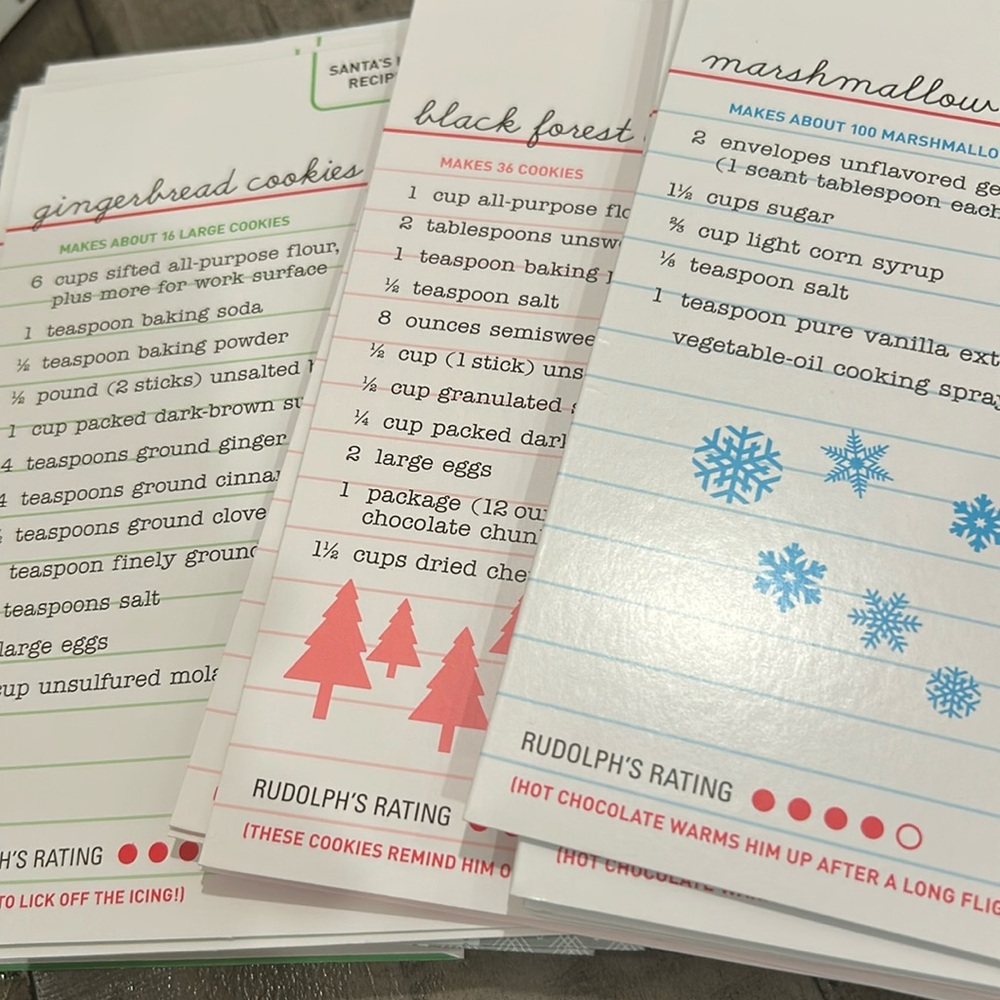 SANTA'S
gingerbread cookies
MAKES ABOUT 16 LARGE COOKIES
6 cups sifted all-purpose flour,
plus more for work surface
1 teaspoon baking soda
½ teaspoon baking powder
½ pound (2 sticks) unsalted
1 cup packed dark-brown
4 teaspoons ground ginger
4 teaspoons ground
teaspoons ground
teaspoon finely
teaspoons salt
large eggs
unsulfured
RATING
TO LICK OFF THE ICING!)
black forest
MAKES 36 COOKIES
1 cup all-purpose
2 tablespoons
1 teaspoon baking
½ teaspoon salt
8 ounces
½ cup (1 stick)
½ cup granulated
¼ cup packed
2 large eggs
1 package (12
chocolate
1½ cups dried
RUDOLPH'S RATING
(THESE COOKIES REMIND HIM
marshmallow
MAKES ABOUT 100
2 envelopes unflavored
(1 scant tablespoon each
1½ cups sugar
⅔ cup light corn syrup
⅛ teaspoon salt
1 teaspoon pure vanilla
vegetable-oil cooking
RUDOLPH'S RATING
(HOT CHOCOLATE WARMS HIM UP AFTER A LONG
(HOT CHOCOLATE